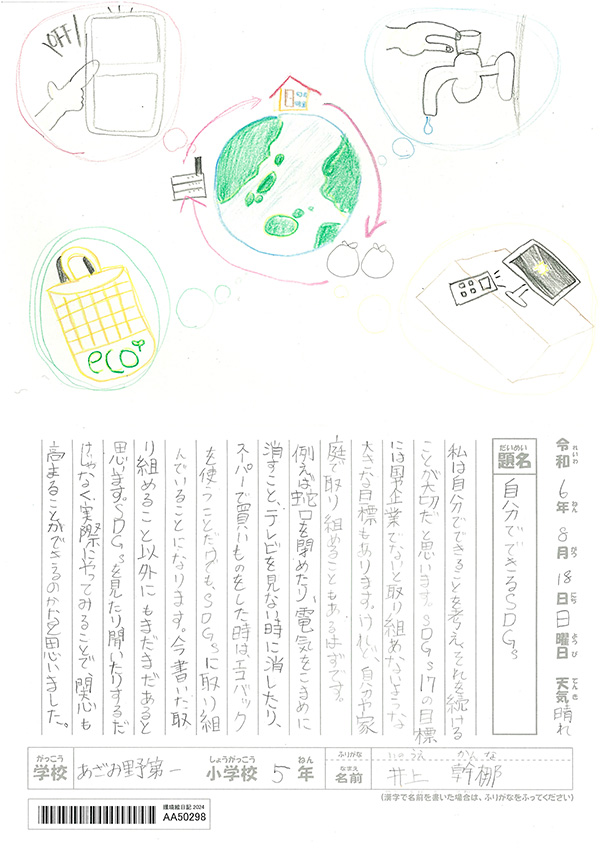 OFF!
eco
令和 6年 8月 18日 日曜日 天気 晴れ
れいわ ねん がつ にち ようび てんき
だいめい
題名
自分でできるSDGs
私は自分でできることを考え、それを続ける
ことが大切だと思います。SDGs17の目標
には国や企業でないと取り組めないような
大きな目標もあります。けれど、自分や家
庭で取り組めることもあるはずです。
例えば蛇口を閉めたり、電気をこまめに
消すこと、テレビを見ない時に消したり、
スーパーで買いものをした時は、エコバック
を使うことだけでも、SDGsに取り組
んでいることになります。今書いた取
り組めること以外にもまだまだあると
思います。SDGsを見たり聞いたりするだ
けじゃなく、実際にやってみることで、関心も
高まることができるのかなと思いました。
がっこう しょうがっこう ねん ふりがな いのうえ かんな
学校 あざみ野第一 小学校 5年 なまえ 名前 井上 幹梛
(漢字で名前を書いた場合は、ふりがなをふってください)
環境絵日記2024
AA50298